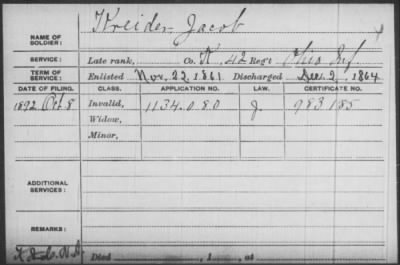 NAME OF SOLDIER: Kreider Jacob
SERVICE: Late rank, Co. K, 42 Reg't Ohio Inf.
TERM OF SERVICE: Enlisted Nov. 22 1861 Discharged Dec. 2, 1864
DATE OF FILING. CLASS. APPLICATION NO. LAW. CERTIFICATE NO.
1892 Oct. 8 Invalid, 1134.080 J. 983185
Widow,
Minor,
ADDITIONAL SERVICES:
REMARKS:
Died , 1 , at